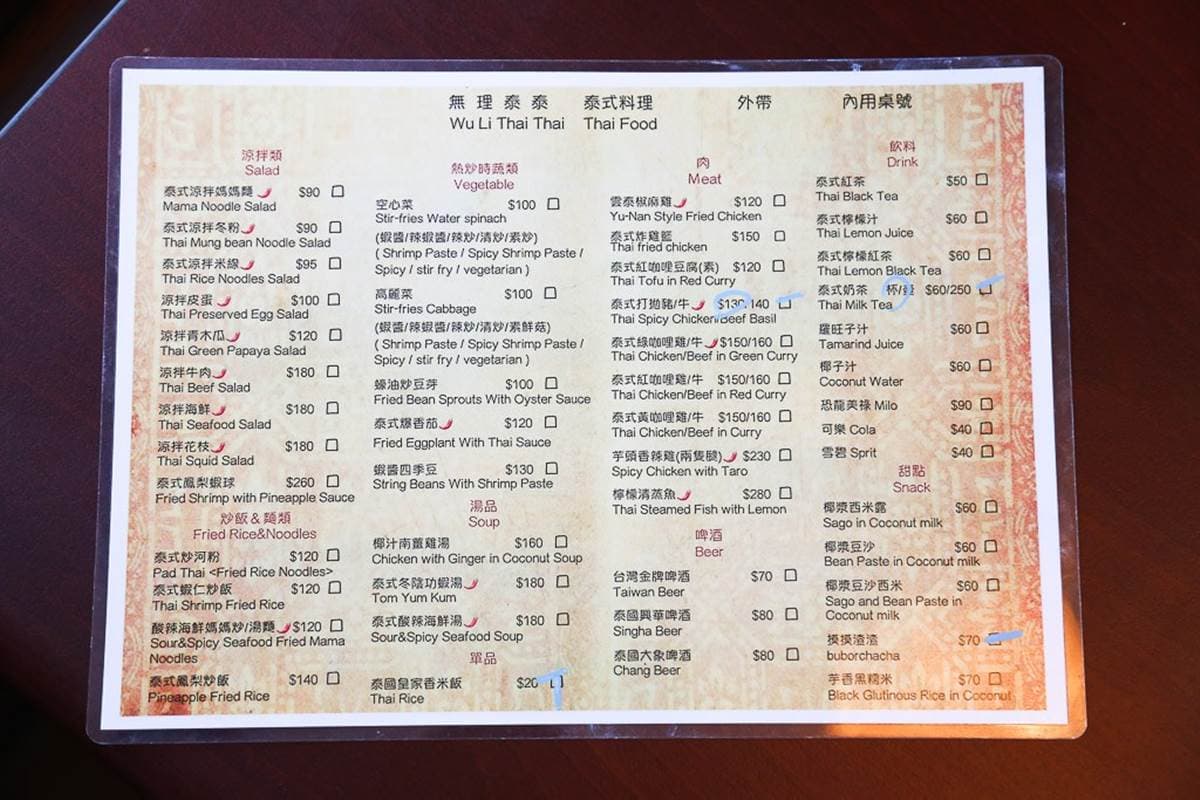 無理泰泰 泰式料理 外帶 內用桌號
Wu Li Thai Thai Thai Food
涼拌類
Salad
泰式涼拌媽媽麵 $90
Mama Noodle Salad
泰式涼拌冬粉 $90
Thai Mung bean Noodle Salad
泰式涼拌米線 $95
Thai Rice Noodles Salad
涼拌皮蛋 $100
Thai Preserved Egg Salad
涼拌青木瓜 $120
Thai Green Papaya Salad
涼拌牛肉 $180
Thai Beef Salad
涼拌海鮮 $180
Thai Seafood Salad
涼拌花枝 $180
Thai Squid Salad
泰式鳳梨蝦球 $260
Fried Shrimp with Pineapple Sauce
炒飯&麵類
Fried Rice&Noodles
泰式炒河粉 $120
Pad Thai <Fried Rice Noodles>
泰式蝦仁炒飯 $120
Thai Shrimp Fried Rice
酸辣海鮮媽媽炒/湯麵 $120
Sour&Spicy Seafood Fried Mama
Noodles
泰式鳳梨炒飯 $140
Pineapple Fried Rice
熱炒時蔬類
Vegetable
空心菜 $100
Stir-fries Water spinach
(蝦醬/辣蝦醬/辣炒/清炒/素炒)
( Shrimp Paste / Spicy Shrimp Paste /
Spicy / stir fry / vegetarian )
高麗菜 $100
Stir-fries Cabbage
(蝦醬/辣蝦醬/辣炒/清炒/素鮮菇)
( Shrimp Paste / Spicy Shrimp Paste /
Spicy / stir fry / vegetarian )
蠔油炒豆芽 $100
Fried Bean Sprouts With Oyster Sauce
泰式爆香茄 $120
Fried Eggplant With Thai Sauce
蝦醬四季豆 $130
String Beans With Shrimp Paste
湯品
Soup
椰汁南薑雞湯 $160
Chicken with Ginger in Coconut Soup
泰式冬陰功蝦湯 $180
Tom Yum Kum
泰式酸辣海鮮湯 $180
Sour&Spicy Seafood Soup
單品
泰國皇家香米飯 $20
Thai Rice
肉
Meat
雲泰椒麻雞 $120
Yu-Nan Style Fried Chicken
泰式炸雞籃 $150
Thai fried chicken
泰式紅咖哩豆腐(素) $120
Thai Tofu in Red Curry
泰式打拋豬/牛 $130/140
Thai Spicy Chicken/Beef Basil
泰式綠咖哩雞/牛 $150/160
Thai Chicken/Beef in Green Curry
泰式紅咖哩雞/牛 $150/160
Thai Chicken/Beef in Red Curry
泰式黃咖哩雞/牛 $150/160
Thai Chicken/Beef in Curry
芋頭香辣雞(兩隻腿) $230
Spicy Chicken with Taro
檸檬清蒸魚 $280
Thai Steamed Fish with Lemon
啤酒
Beer
台灣金牌啤酒 $70
Taiwan Beer
泰國興華啤酒 $80
Singha Beer
泰國大象啤酒 $80
Chang Beer
飲料
Drink
泰式紅茶 $50
Thai Black Tea
泰式檸檬汁 $60
Thai Lemon Juice
泰式檸檬紅茶 $60
Thai Lemon Black Tea
泰式奶茶 杯/壺 $60/250
Thai Milk Tea
羅旺子汁 $60
Tamarind Juice
椰子汁 $60
Coconut Water
恐龍美祿 Milo $90
可樂 Cola $40
雪碧 Sprit $40
甜點
Snack
椰漿西米露 $60
Sago in Coconut milk
椰漿豆沙 $60
Bean Paste in Coconut milk
椰漿豆沙西米 $60
Sago and Bean Paste in
Coconut milk
摸摸渣渣 $70
buborchacha
芋香黑糯米 $70
Black Glutinous Rice in Coconut